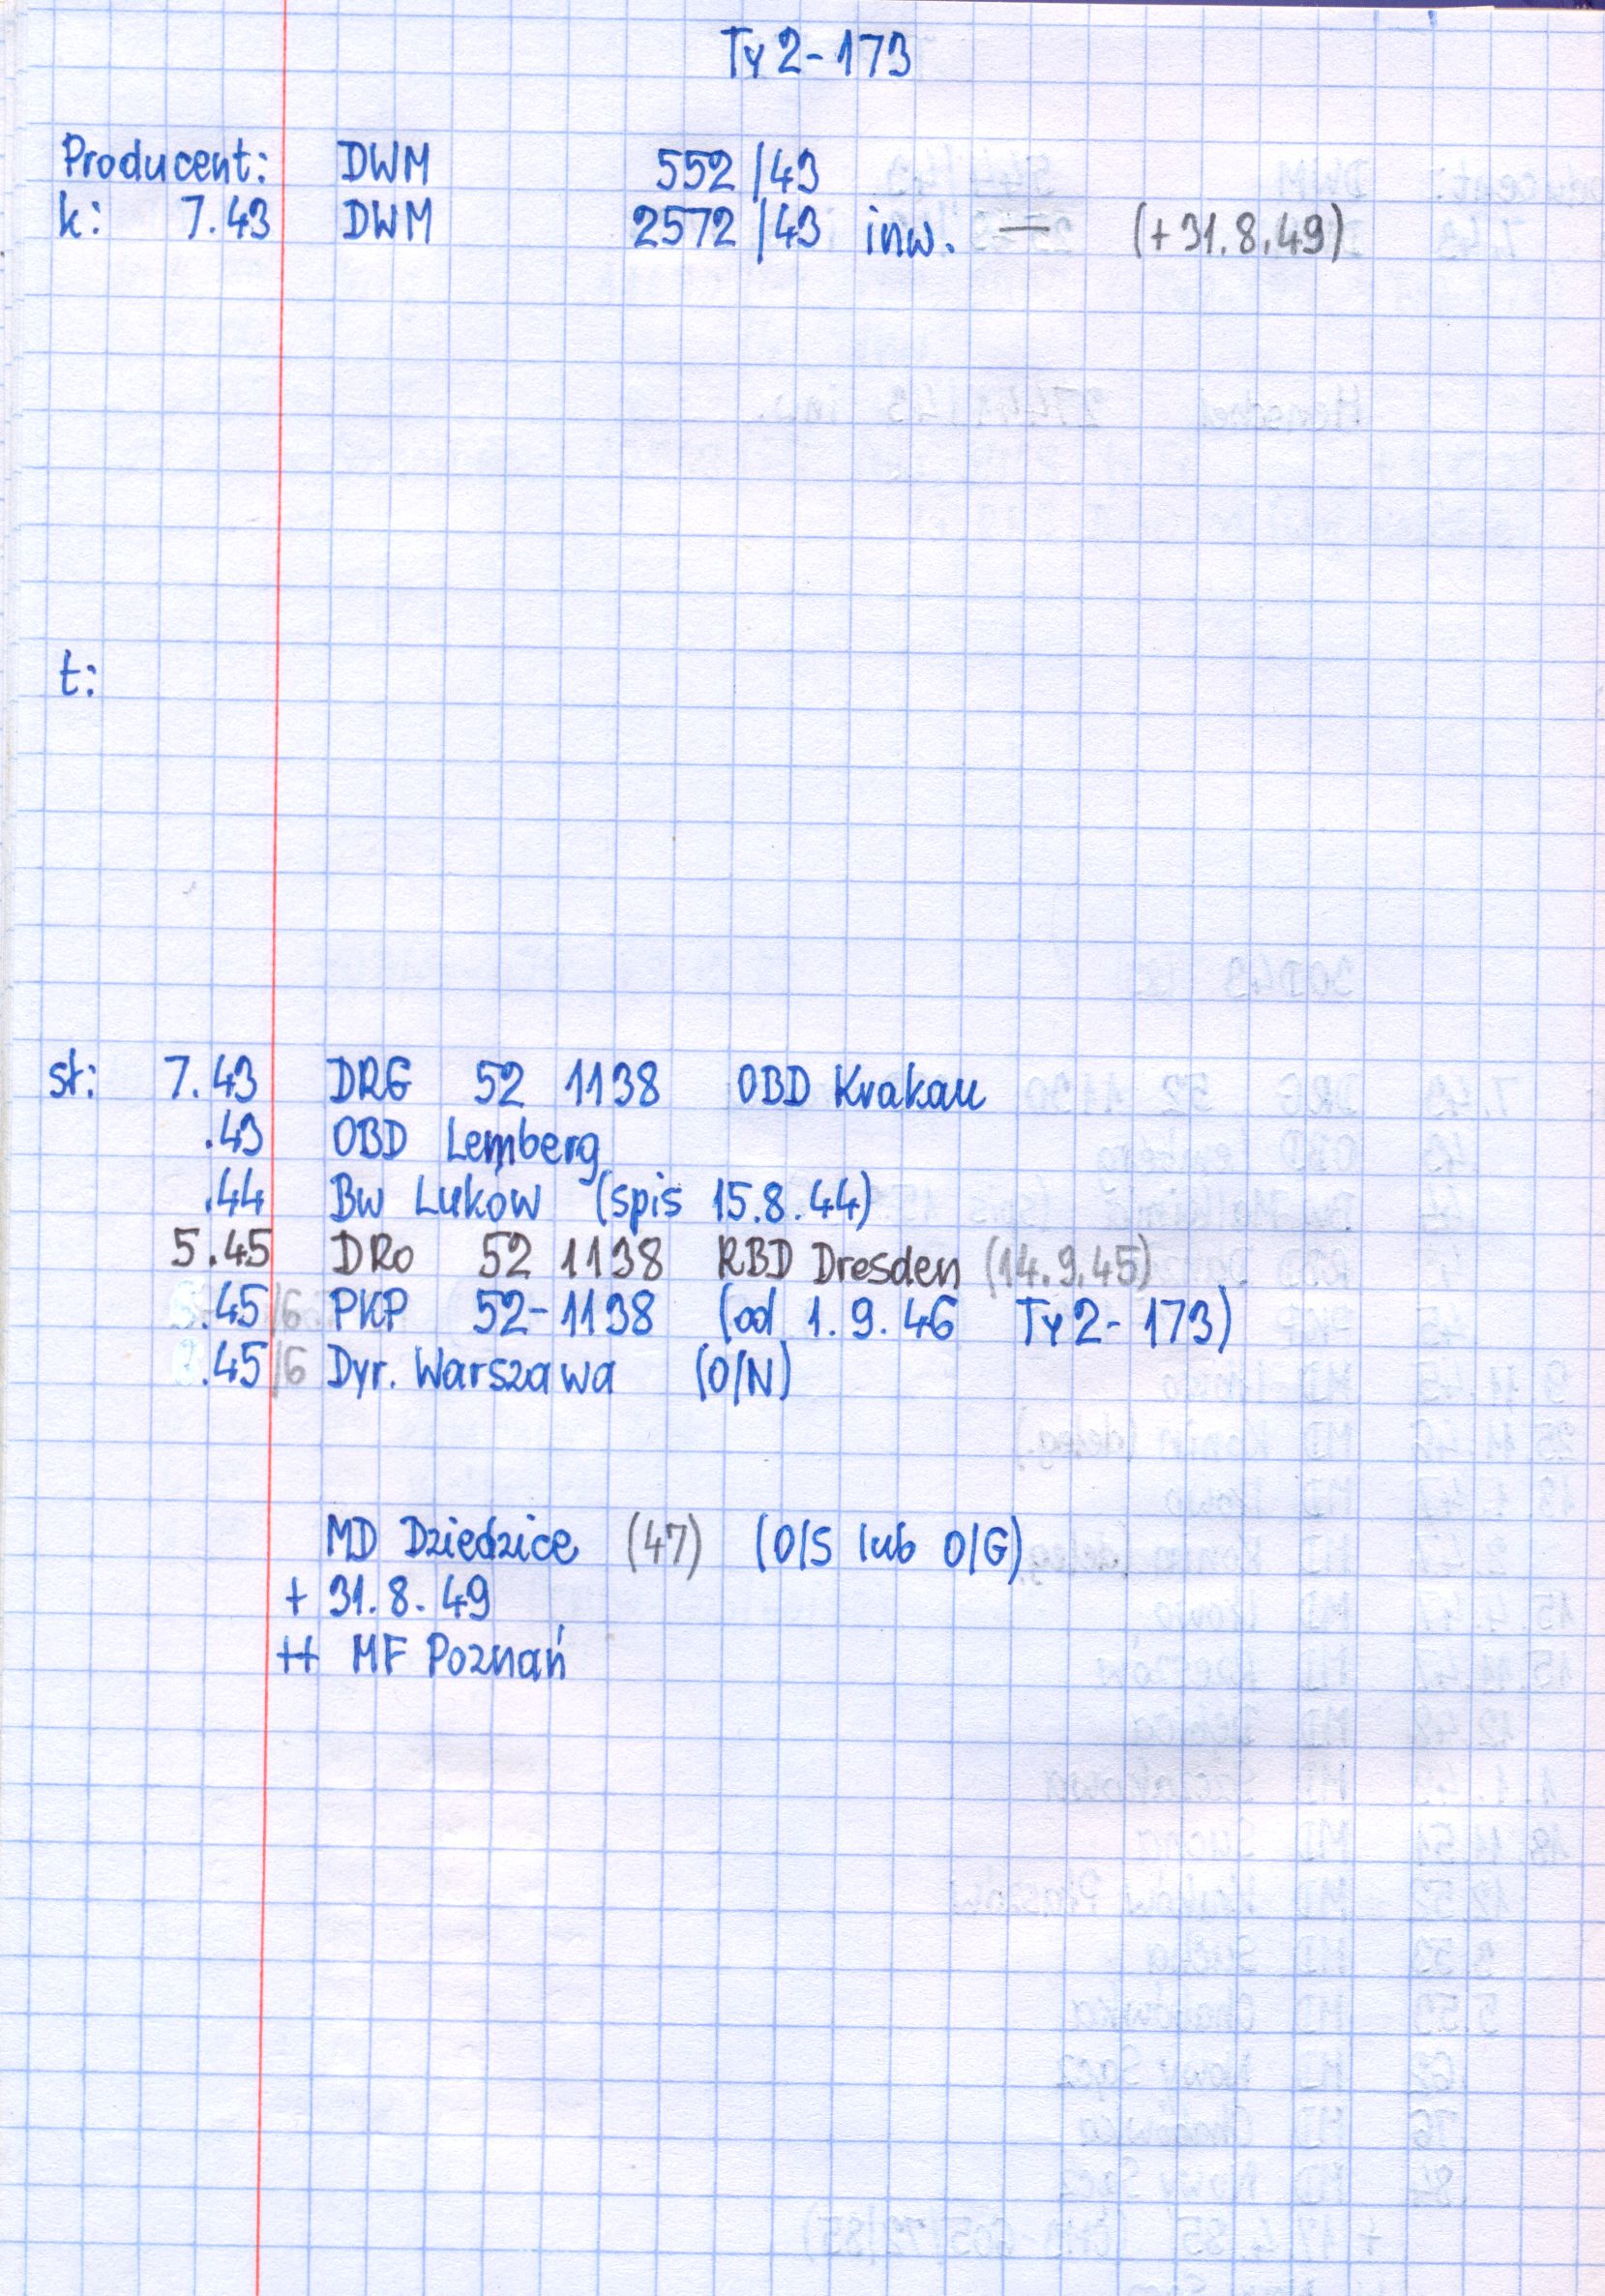 Ty2-173
Producent: DWM 552/43
k: 7.43 DWM 2572/43 inw. — (+31.8.49)
t:
st: 7.43 DRG 52 1138 OBD Krakau
.43 OBD Lemberg
.44 Bw Luków (spis 15.8.44)
5.45 DRo 52 1138 RBD Dresden (14.9.45)
.45/6 PKP 52-1138 (od 1.9.46 Ty2-173)
.45/6 Dyr. Warszawa (O/N)
MD Dziedzice (47) (O/S lub O/G)
+ 31.8.49
++ MF Poznań